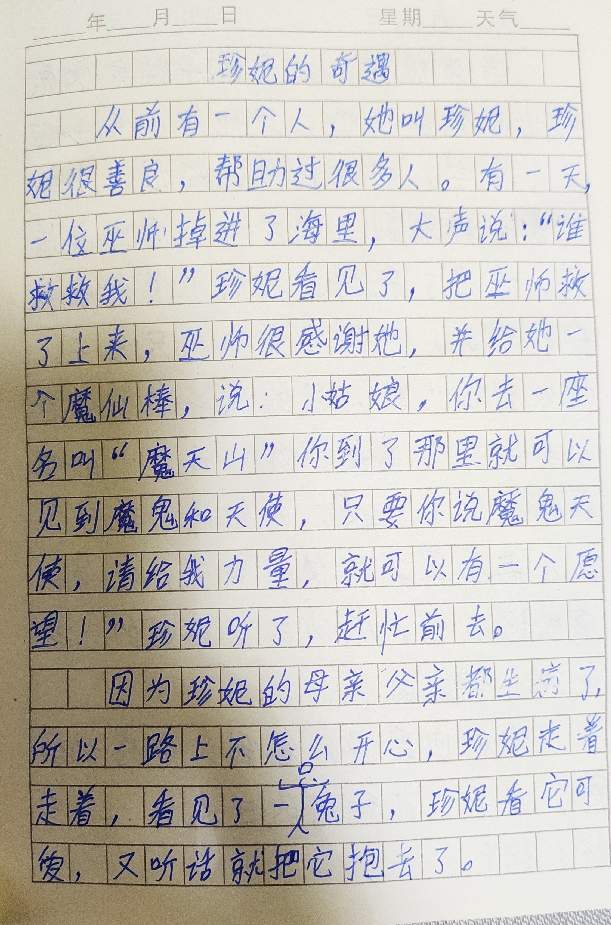 年 月 日 星期 天气
珍妮的奇遇
从前有一个人，她叫珍妮，珍
妮很善良，帮助过很多人。有一天，
一位巫师掉进了海里，大声说：“谁
救救我！”珍妮看见了，把巫师救
了上来，巫师很感谢她，并给她一
个魔仙棒，说：小姑娘，你去一座
名叫“魔天山”你到了那里就可以
见到魔鬼和天使，只要你说魔鬼天
使，请给我力量，就可以有一个愿
望！”珍妮听了，赶忙前去。
因为珍妮的母亲父亲都生病了，
所以一路上不怎么开心，珍妮走着
走着，看见了一只兔子，珍妮看它可
後，又听话就把它抱去了。